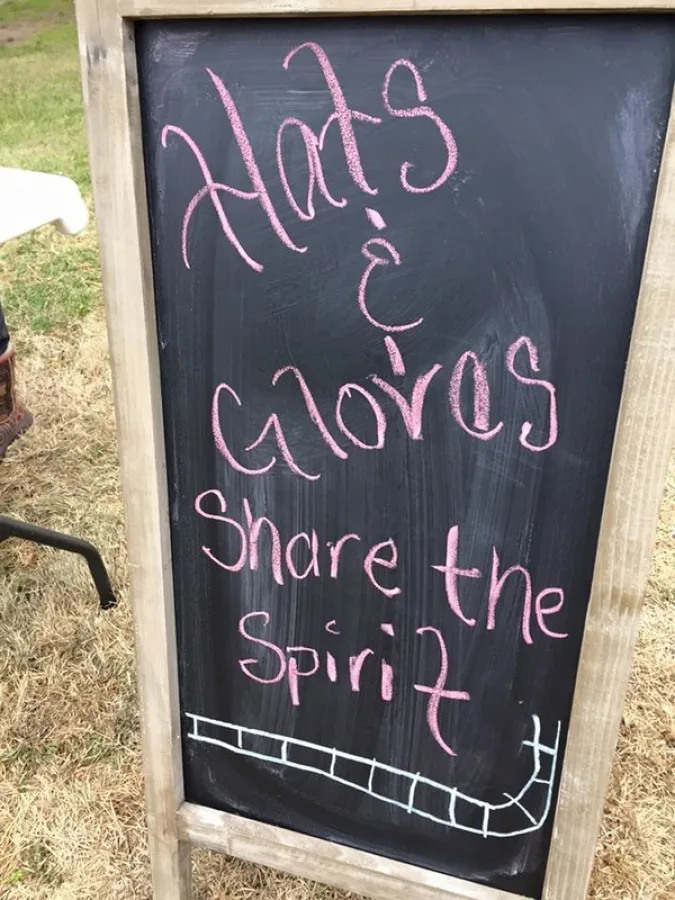 Hats
&
Gloves
Share the
Spirit